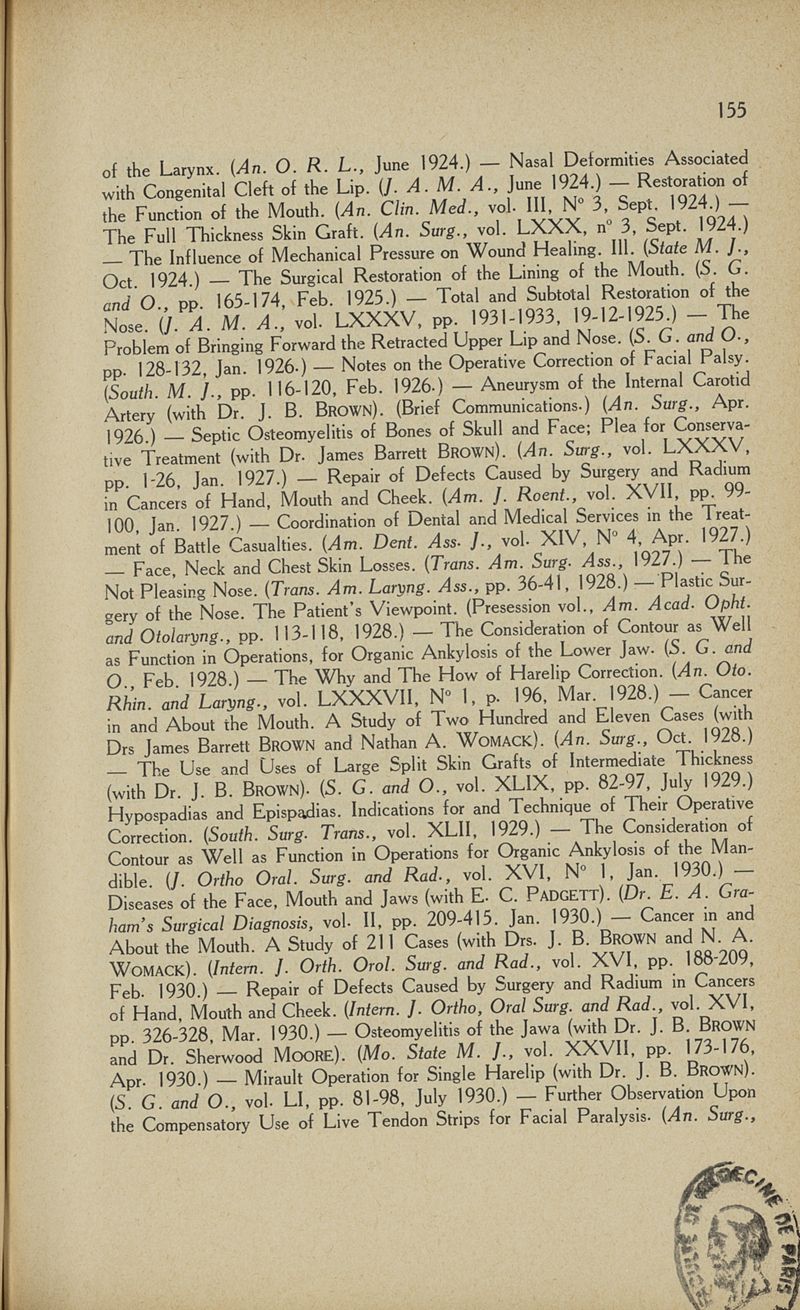 155
of the Larynx. (An. O. R. L., June 1924.) — Nasal Deformities Associated
with Congenital Cleft of the Lip. (J. A. M. A., June 1924.) — Restoration of
the Function of the Mouth. (An. Clin. Med., vol. III, N° 3, Sept. 1924.) —
The Full Thickness Skin Graft. (An. Surg., vol. LXXX, n° 3, Sept. 1924.)
— The Influence of Mechanical Pressure on Wound Healing. III. (State M. J.,
Oct. 1924.) — The Surgical Restoration of the Lining of the Mouth. (S. G.
and O., pp. 165-174, Feb. 1925.) — Total and Subtotal Restoration of the
Nose. (J. A. M. A., vol. LXXXV, pp. 1931-1933, 19-12-1925.) — The
Problem of Bringing Forward the Retracted Upper Lip and Nose. (S. G. and O.,
pp. 128-132, Jan. 1926.) — Notes on the Operative Correction of Facial Palsy.
(South. M. J., pp. 116-120, Feb. 1926.) — Aneurysm of the Internal Carotid
Artery (with Dr. J. B. BROWN). (Brief Communications.) (An. Surg., Apr.
1926.) — Septic Osteomyelitis of Bones of Skull and Face; Plea for Conserva-
tive Treatment (with Dr. James Barrett BROWN). (An. Surg., vol. LXXXV,
pp. 1-26, Jan. 1927.) — Repair of Defects Caused by Surgery and Radium
in Cancers of Hand, Mouth and Cheek. (Am. J. Roent., vol. XVII, pp. 99-
100, Jan. 1927.) — Coordination of Dental and Medical Services in the Treat-
ment of Battle Casualties. (Am. Dent. Ass. J., vol. XIV, N° 4, Apr. 1927.)
— Face, Neck and Chest Skin Losses. (Trans. Am. Surg. Ass., 1927.) — The
Not Pleasing Nose. (Trans. Am. Laryng. Ass., pp. 36-41, 1928.) — Plastic Sur-
gery of the Nose. The Patient's Viewpoint. (Presession vol., Am. Acad. Opht.
and Otolaryng., pp. 113-118, 1928.) — The Consideration of Contour as Well
as Function in Operations, for Organic Ankylosis of the Lower Jaw. (S. G. and
O., Feb. 1928.) — The Why and The How of Harelip Correction. (An. Oto.
Rhin. and Laryng., vol. LXXXVII, N° 1, p. 196, Mar. 1928.) — Cancer
in and About the Mouth. A Study of Two Hundred and Eleven Cases (with
Drs James Barrett BROWN and Nathan A. WOMACK). (An. Surg., Oct. 1928.)
— The Use and Uses of Large Split Skin Grafts of Intermediate Thickness
(with Dr. J. B. BROWN). (S. G. and O., vol. XLIX, pp. 82-97, July 1929.)
Hypospadias and Epispadias. Indications for and Technique of Their Operative
Correction. (South. Surg. Trans., vol. XLII, 1929.) — The Consideration of
Contour as Well as Function in Operations for Organic Ankylosis of the Man-
dible. (J. Ortho Oral. Surg. and Rad., vol. XVI, N° 1, Jan. 1930.) —
Diseases of the Face, Mouth and Jaws (with E. C. PADGETT). (Dr. E. A. Gra-
ham's Surgical Diagnosis, vol. II, pp. 209-415. Jan. 1930.) — Cancer in and
About the Mouth. A Study of 211 Cases (with Drs. J. B. BROWN and N. A.
WOMACK). (Intern. J. Orth. Orol. Surg. and Rad., vol. XVI, pp. 188-209,
Feb. 1930.) — Repair of Defects Caused by Surgery and Radium in Cancers
of Hand, Mouth and Cheek. (Intern. J. Ortho, Oral Surg. and Rad., vol. XVI,
pp. 326-328, Mar. 1930.) — Osteomyelitis of the Jawa (with Dr. J. B. BROWN
and Dr. Sherwood MOORE). (Mo. State M. J., vol. XXVII, pp. 173-176,
Apr. 1930.) — Mirault Operation for Single Harelip (with Dr. J. B. BROWN).
(S. G. and O., vol. LI, pp. 81-98, July 1930.) — Further Observation Upon
the Compensatory Use of Live Tendon Strips for Facial Paralysis. (An. Surg.,